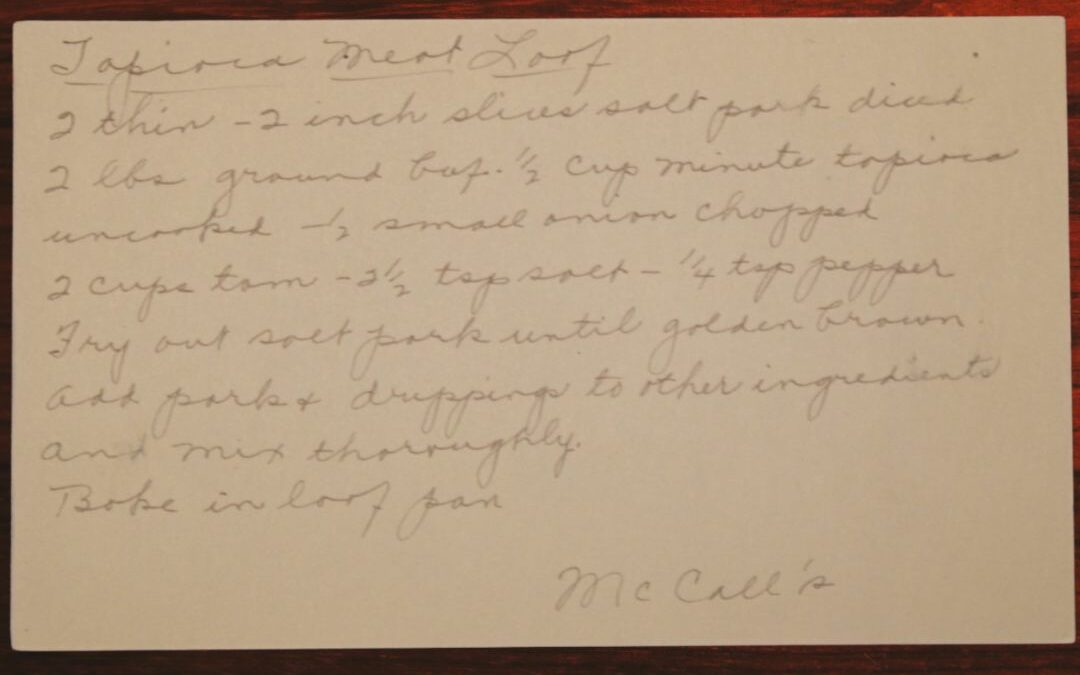 Tapioca Meat Loaf
2 thin - 2 inch slices salt pork diced
2 lbs ground beef. 1/2 cup minute tapioca
uncooked - 1/2 small onion chopped
2 cups tom - 2 1/2 tsp salt - 1/4 tsp pepper
Fry out salt pork until golden brown.
Add pork & drippings to other ingredients
and mix thoroughly.
Bake in loaf pan
McCall's